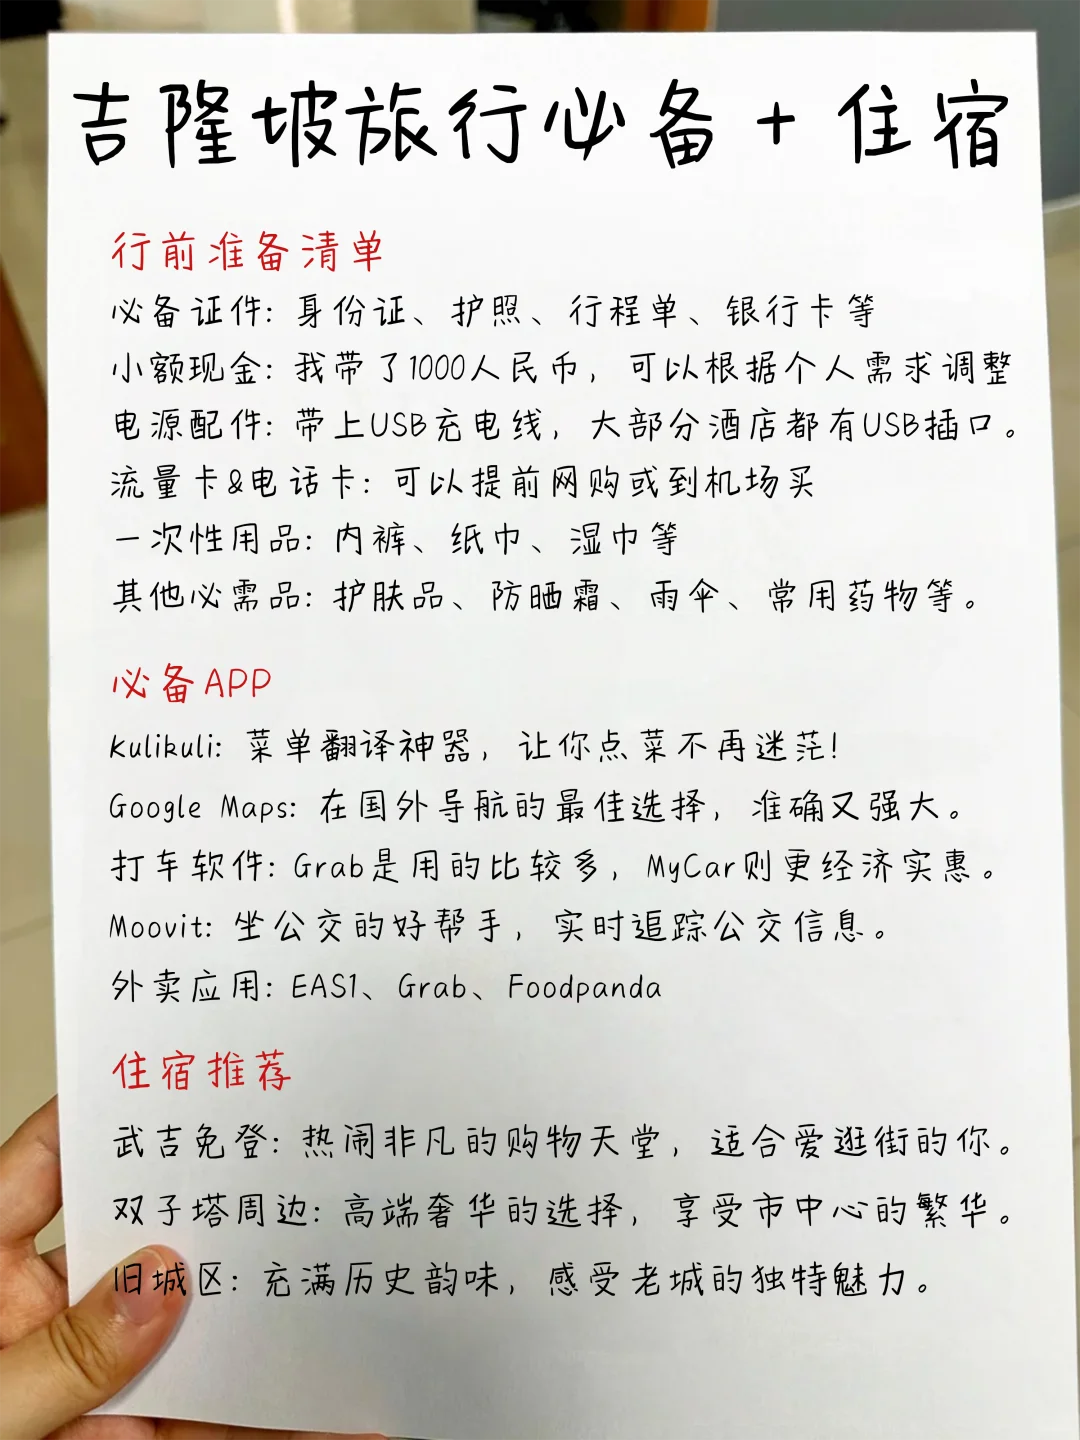 吉隆坡旅行必备+住宿
行前准备清单
必备证件: 身份证、护照、行程单、银行卡等
小额现金: 我带了1000人民币, 可以根据个人需求调整
电源配件: 带上USB充电线, 大部分酒店都有USB插口。
流量卡&电话卡: 可以提前网购或到机场买
一次性用品: 内裤、纸巾、湿巾等
其他必需品: 护肤品、防晒霜、雨伞、常用药物等。
必备APP
Kulikuli: 菜单翻译神器, 让你点菜不再迷茫!
Google Maps: 在国外导航的最佳选择, 准确又强大。
打车软件: Grab是用的比较多, MyCar则更经济实惠。
Moovit: 坐公交的好帮手, 实时追踪公交信息。
外卖应用: EAS1、Grab、Foodpanda
住宿推荐
武吉免登: 热闹非凡的购物天堂, 适合爱逛街的你。
双子塔周边: 高端奢华的选择, 享受市中心的繁华。
旧城区: 充满历史韵味, 感受老城的独特魅力。